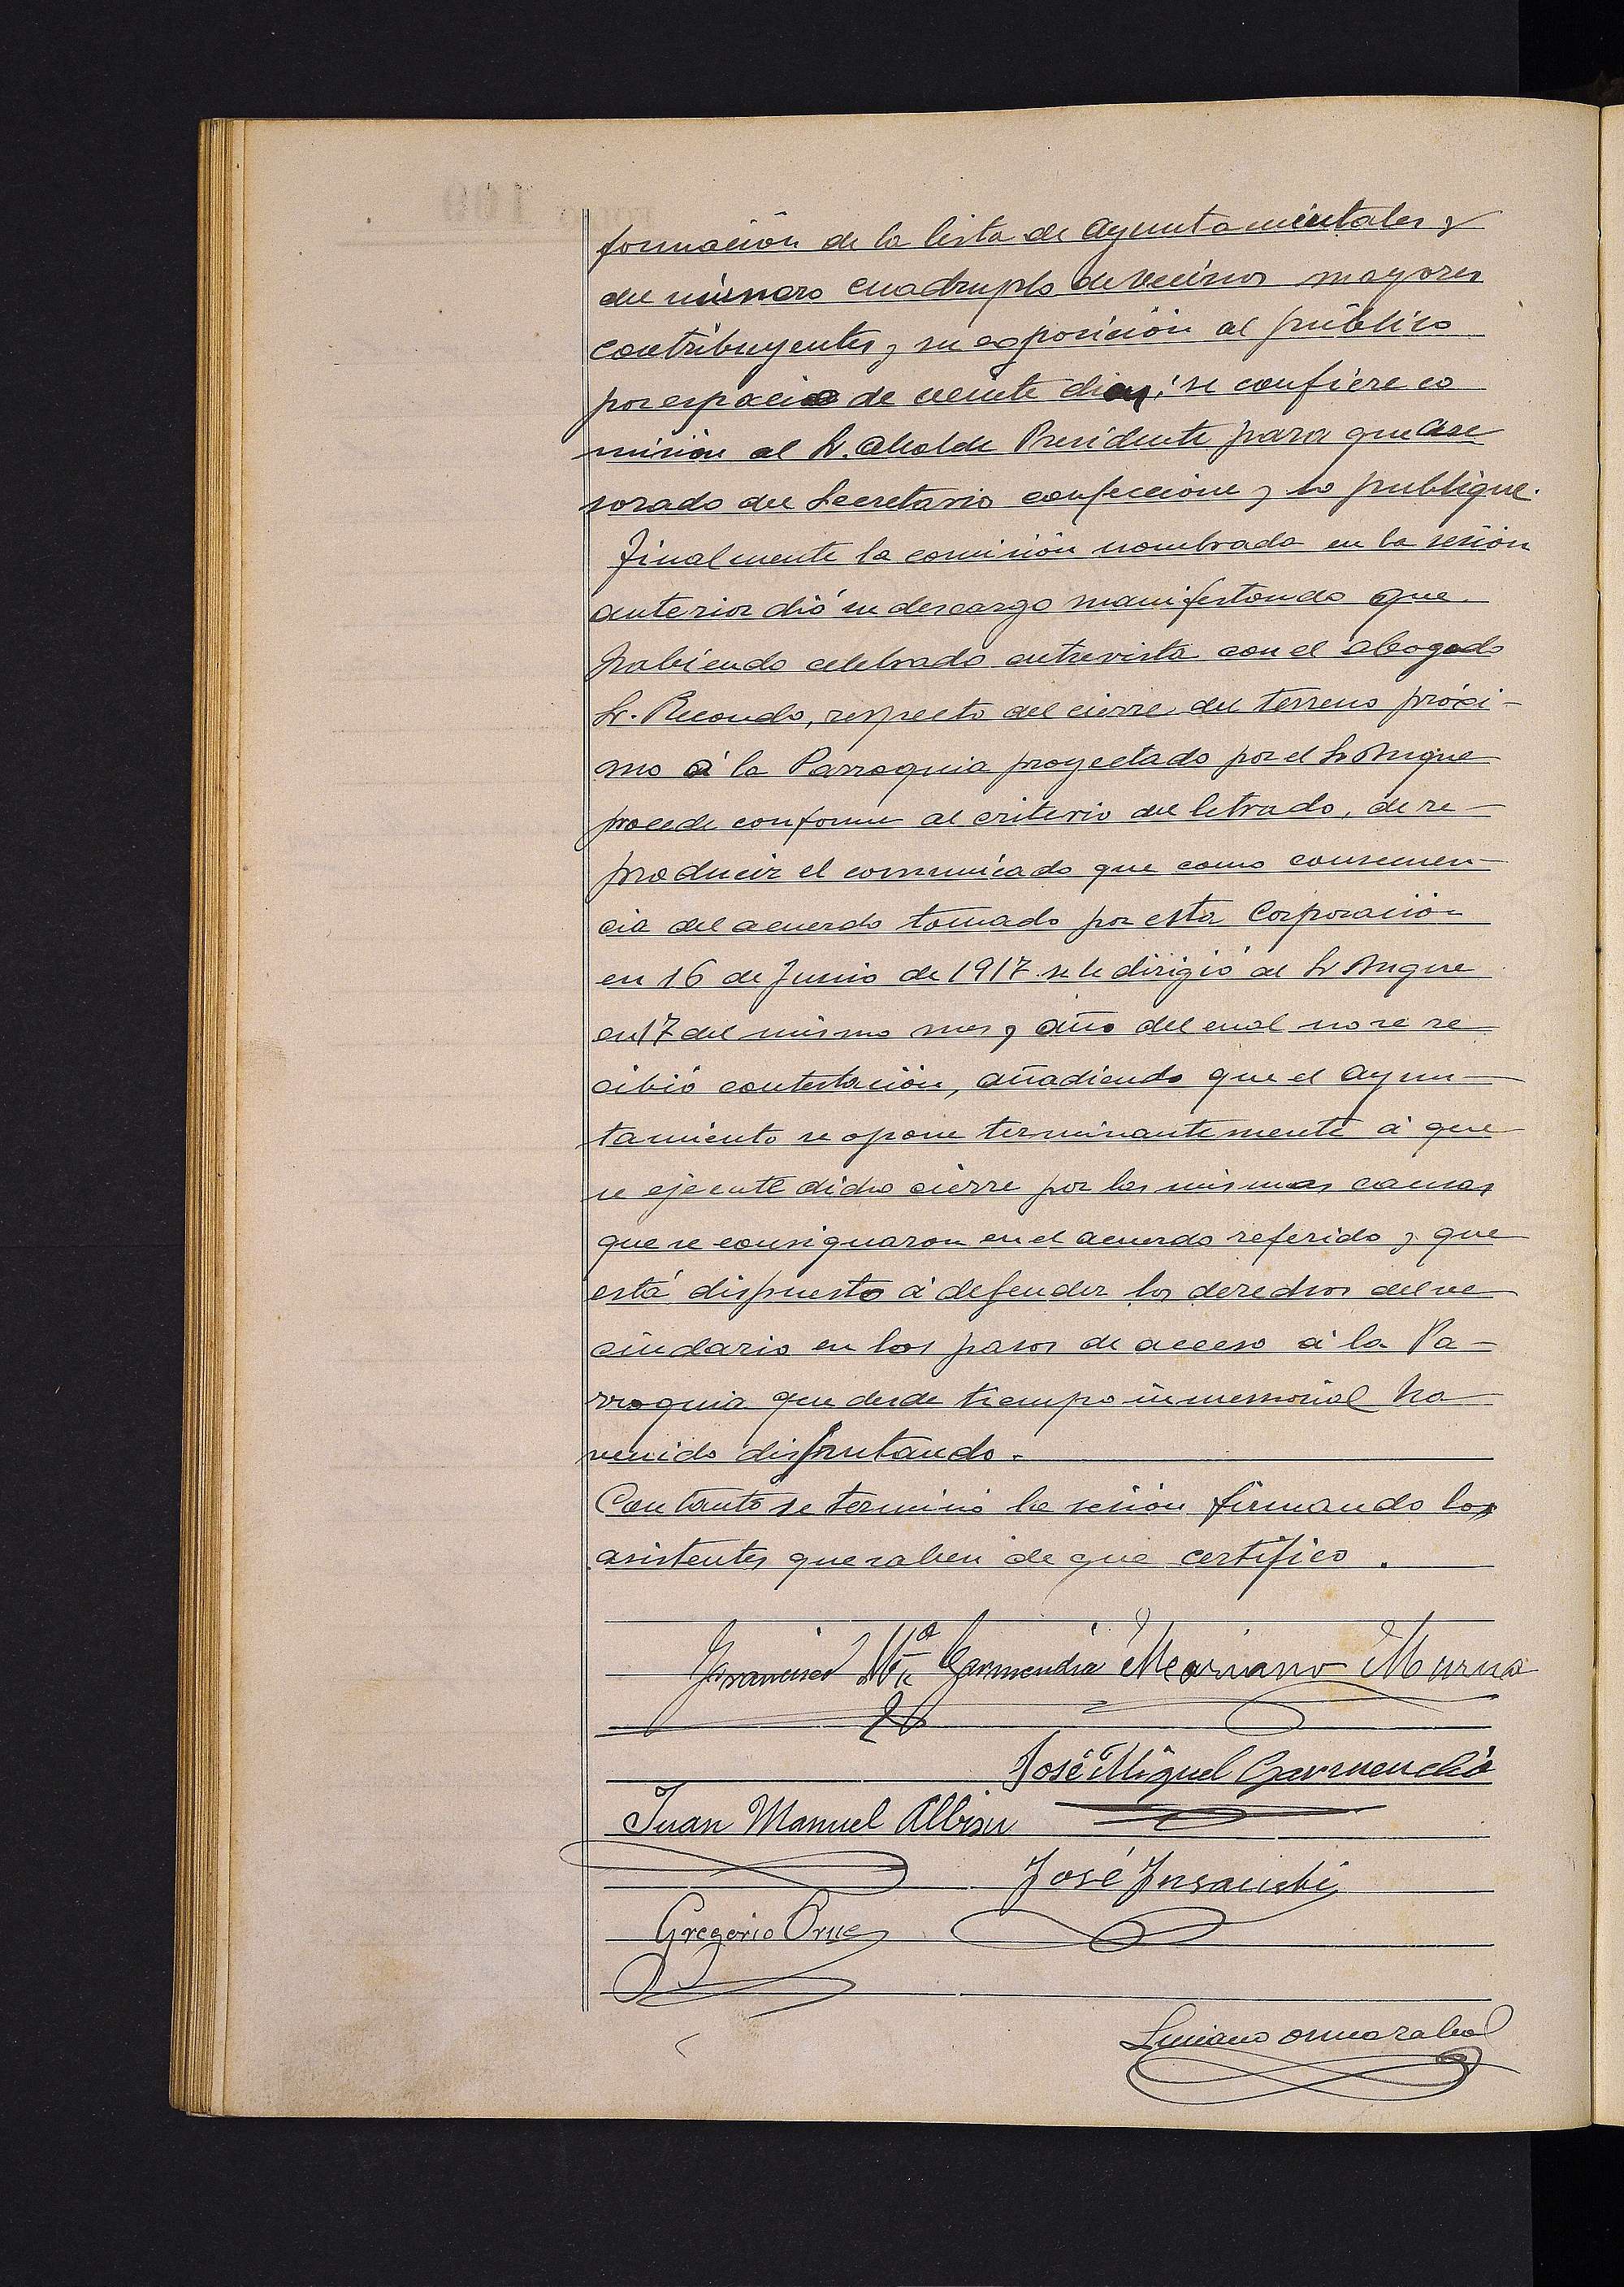 formación de la lista de Ayuntamientales y
del número cuadruplo de vecinos mayores
contribuyentes y su exposición al público
por espacio de veinte dias; se confiere co
misión al Sr. Alcalde Presidente para que ase
sorado del Secretario confeccione y lo publique.
Finalmente la comisión nombrada en la sesión
anterior dió su descargo manifestando que
habiendo celebrado entrevista con el abogado
Sr. Recondo, respecto del cierre del terreno próxi-
mo á la Parroquia proyectado por el Sr
procede conforme al criterio del letrado, de re-
producir el comunicado que como consecuen-
cia del acuerdo tomado por esta Corporación
en 16 de Junio de 1917 se le dirigió al Sr
en 17 del mismo mes y año del cual no se re
cibió contestación, añadiendo que el Ayun-
tamiento se opone terminantemente á que
se ejecute dicho cierre por las mismas causas
que se consignaron en el acuerdo referido y que
está dispuesto á defender los derechos del ve
cindario en los pasos de acceso á la Pa-
rroquia que desde tiempo inmemorial ha
venido disfrutando.
Con tanto se terminó la sesión firmando los
asistentes que saben de que certifico.
Francisco Mª Garmendia Mariano Murua
José Miguel Garmendia
Juan Manuel Albisu
José Insausti
Gregorio Orue
Luciano